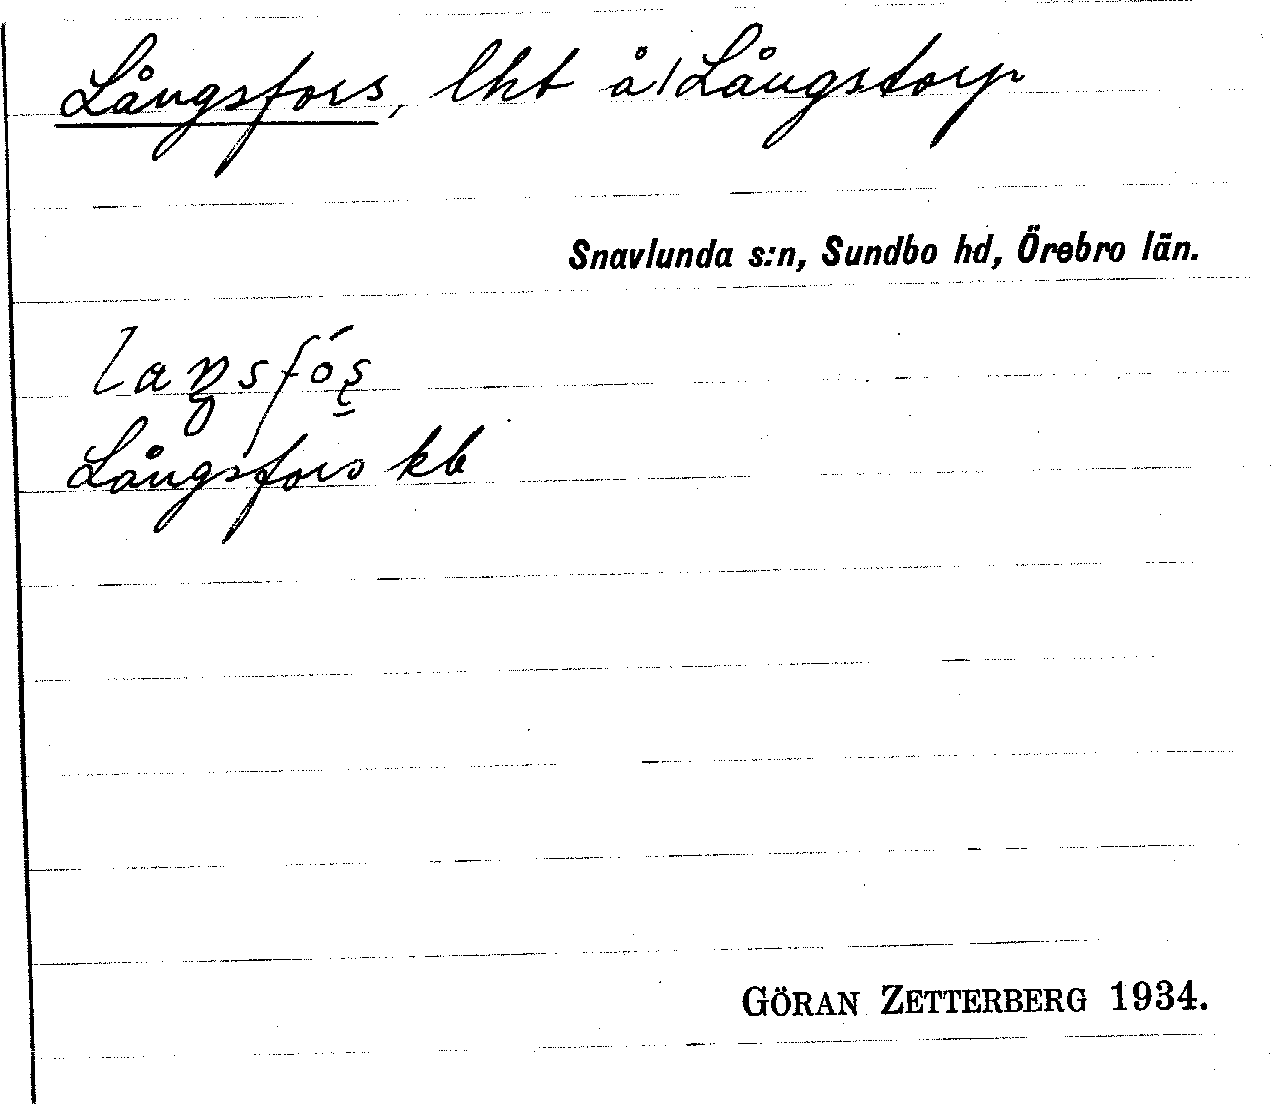 Långsfors, lht å/Långstorp
Snavlunda s:n, Sundbo hd, Örebro län.
Långsfors kb
GÖRAN ZETTERBERG 1934.